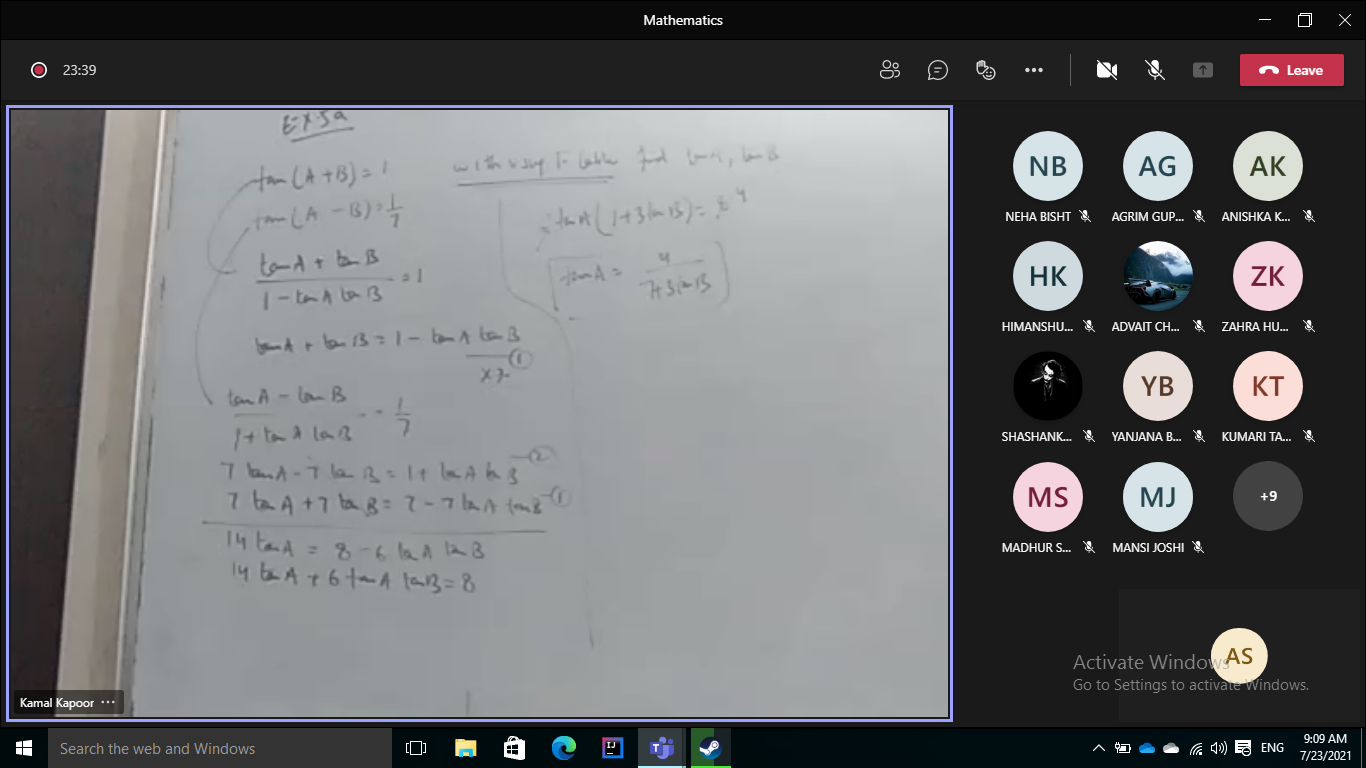 Mathematics
23:39
Leave
Ex.5a
tan(A+B)=1
tan(A-B)=1/7
tanA + tanB
1 - tanA tanB
=1
tanA + tanB = 1 - tanA tanB
①
×7
tanA - tanB
1 + tanA tanB
= 1/7
7 tanA - 7 tanB = 1 + tanA tanB -②
7 tanA + 7 tanB = 7 - 7 tanA tanB -①
14 tanA = 8 - 6 tanA tanB
14 tanA + 6 tanA tanB = 8
find tanA, tanB
tanA = 4
Kamal Kapoor
NB
AG
AK
NEHA BISHT
AGRIM GUP...
ANISHKA K...
HK
ZK
HIMANSHU...
ADVAIT CH...
ZAHRA HU...
YB
KT
SHASHANK...
YANJANA B...
KUMARI TA...
MS
MJ
+9
MADHUR S...
MANSI JOSHI
AS
Activate Windows
Go to Settings to activate Windows.
Search the web and Windows
ENG
9:09 AM
7/23/2021